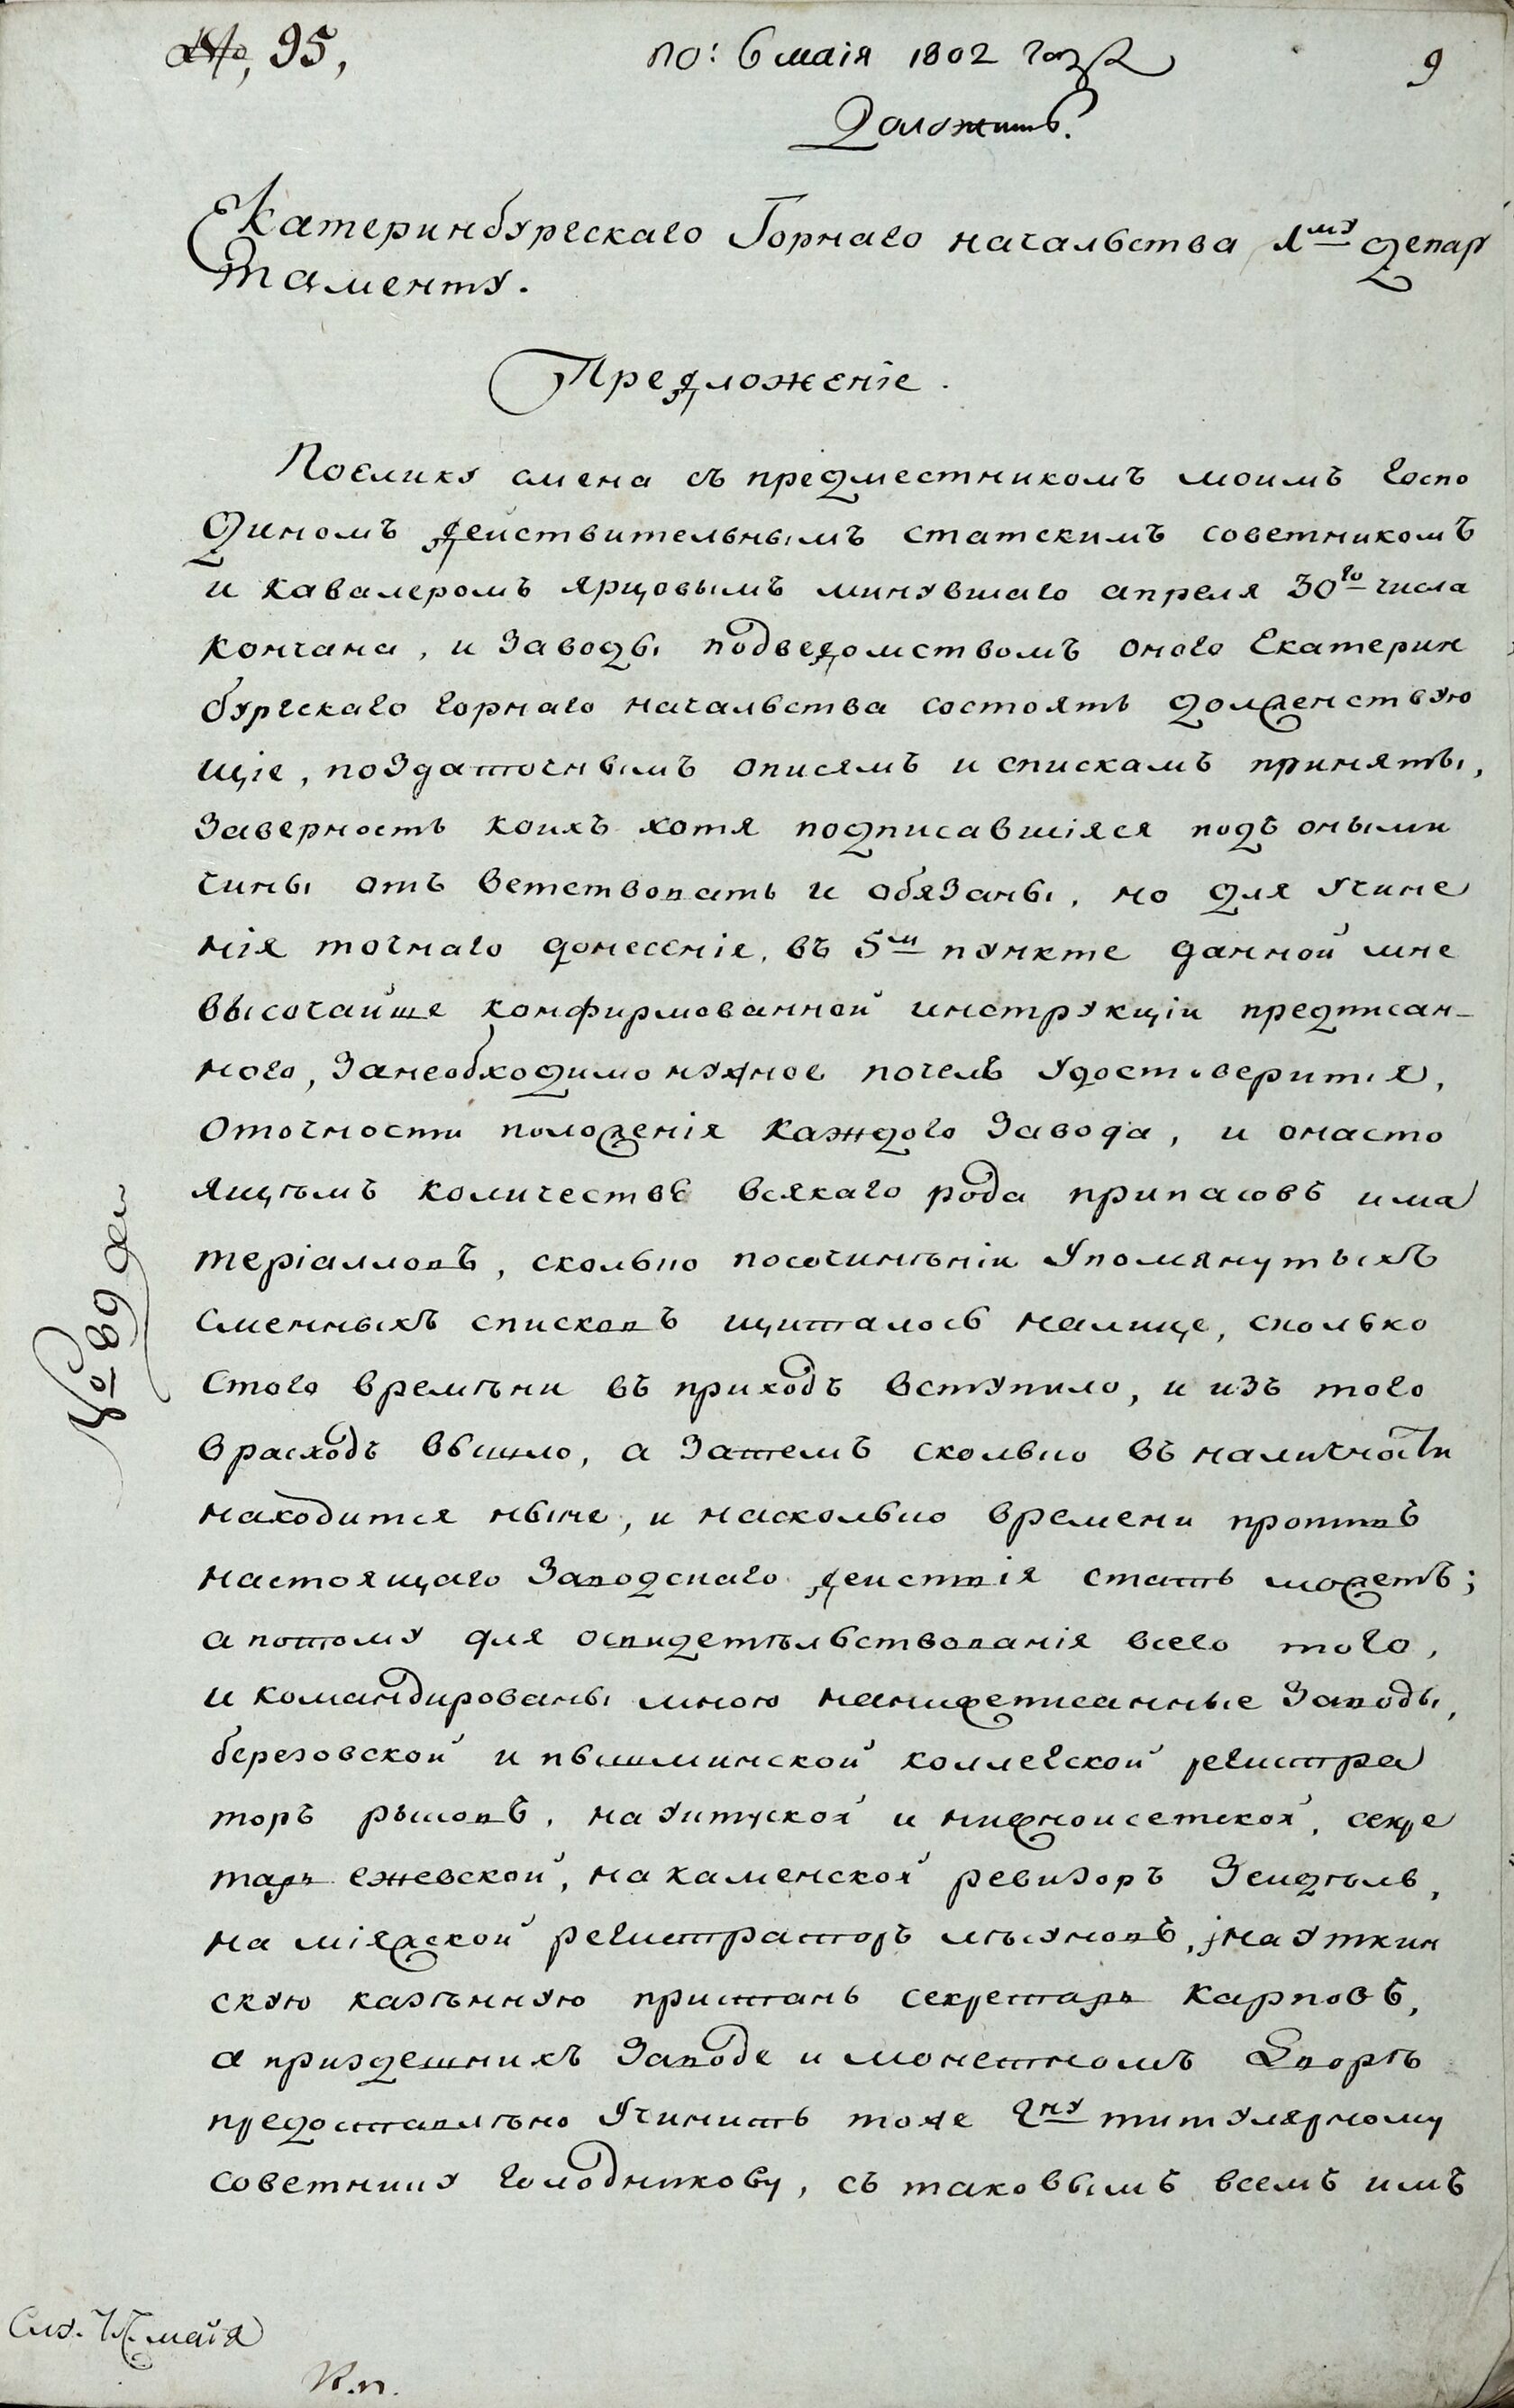 №, 95,
по: 6 маія 1802 года
9
Доложить.
Екатеринбургскаго Горнаго начальства 1му депар
таменту.
Предложеніе.
Поелику смена съ предместникомъ моимъ госпо
диномъ действительнымъ статскимъ советникомъ
и кавалеромъ ярцовымъ минувшаго апреля 30го числа
кончана, и заводы подведомствомъ оного Екатерин
бургскаго горнаго начальства состоять долженствую
щіе, поздаточнымъ описямъ и спискамъ приняты,
заверность коихъ хотя подписавшіяся подъ оными
чины отъ ветствовать и обязаны, но для учине
нія точнаго донесеніе, въ 5м пункте данной мне
высочайше конфирмованной инструкціи предписан-
ного, занеобходимо нужное почелъ удостоверится,
оточности положенія каждого завода, и онасто
ящѣмъ количестве всякаго рода припасовъ има
теріалловъ, сколько посочинѣніи упомянутыхъ
сменныхъ списковъ щиталось налице, сколько
стого времѣни въ приходъ вступило, и изъ того
врасходъ вышло, а затемъ сколько въ наличности
находится ныне, и насколько времени противъ
настоящаго заводскаго действія стать можетъ;
а потому для освидетѣльствованія всего того,
и командированы мною нанижеписанные заводы,
березовской и пышминской коллегской регистра
торъ рыловъ, на уктуской и нижноисетской, секре
тарь ежевской, на каменской ревизоръ Зейдѣль,
на міяжской регистраторъ мѣуновъ, јна уткин
скую казѣнную пристань секретарь карповъ,
а приздешнихъ заводе и монетномъ дворѣ
предоставлѣно учинить тоже гну титулярному
советнику голодникову, съ таковымъ всемъ имъ
Слу. 17. маія
К.п.